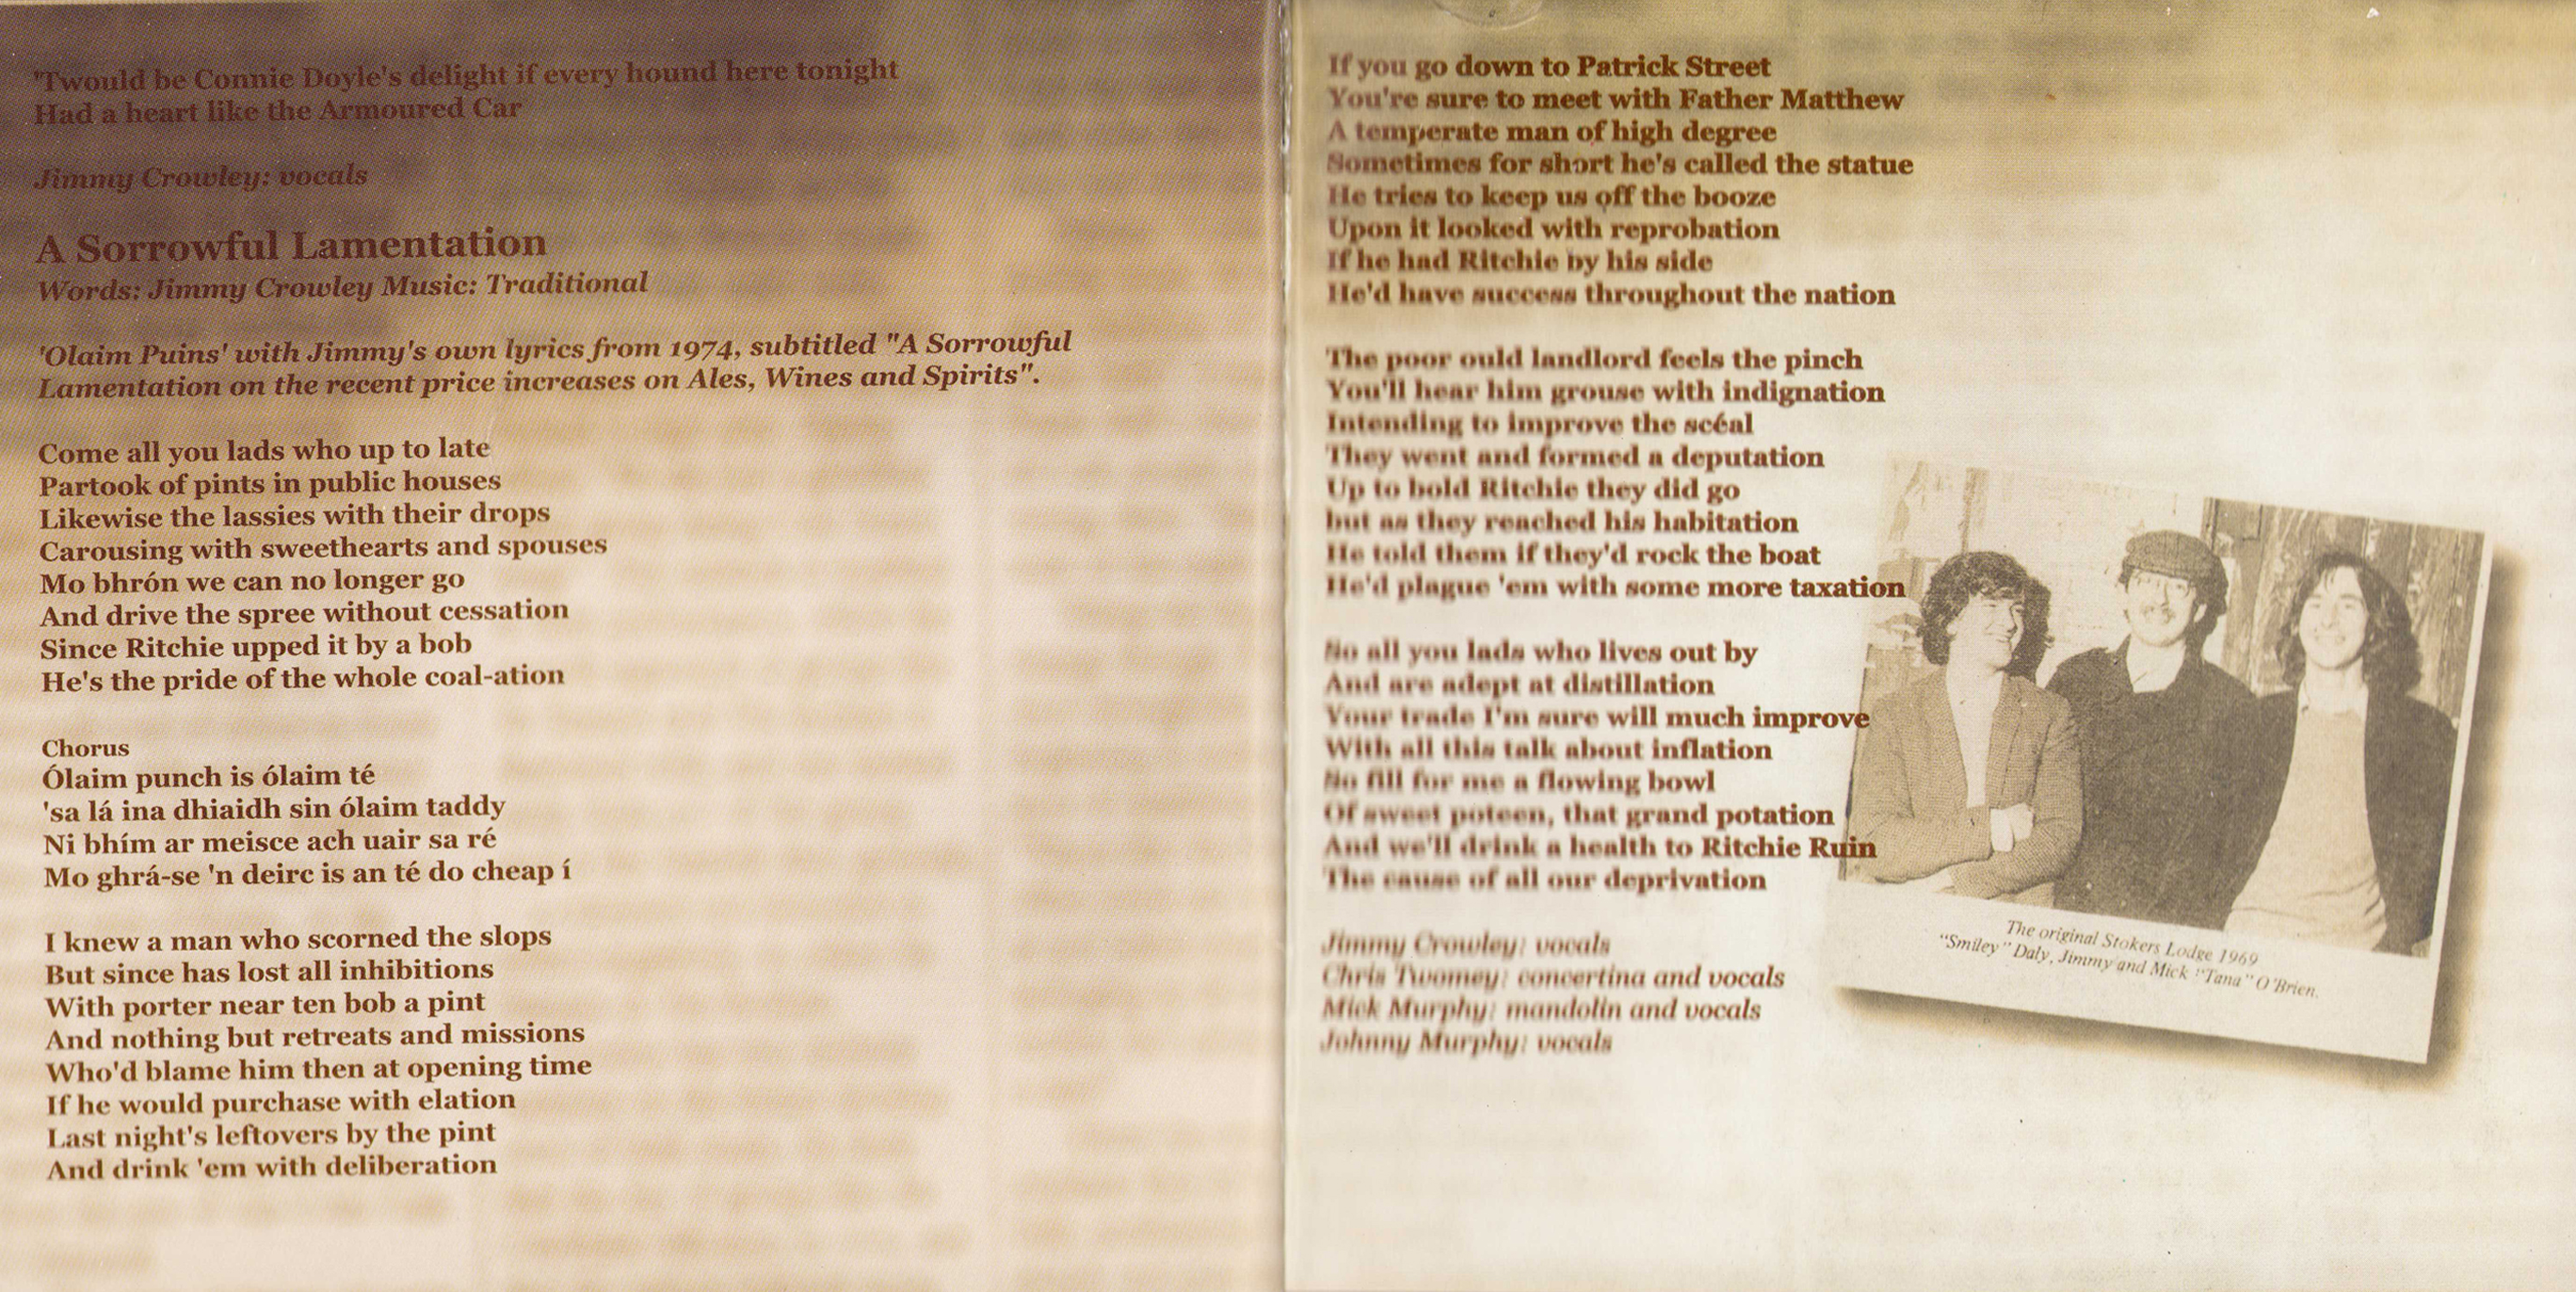 'Twould be Connie Doyle's delight if every hound here tonight
Had a heart like the Armoured Car
Jimmy Crowley: vocals
A Sorrowful Lamentation
Words: Jimmy Crowley Music: Traditional
'Olaim Puins' with Jimmy's own lyrics from 1974, subtitled "A Sorrowful
Lamentation on the recent price increases on Ales, Wines and Spirits".
Come all you lads who up to late
Partook of pints in public houses
Likewise the lassies with their drops
Carousing with sweethearts and spouses
Mo bhrón we can no longer go
And drive the spree without cessation
Since Ritchie upped it by a bob
He's the pride of the whole coal-ation
Chorus
Ólaim punch is ólaim té
'sa lá ina dhiaidh sin ólaim taddy
Ni bhím ar meisce ach uair sa ré
Mo ghrá-se 'n deirc is an té do cheap í
I knew a man who scorned the slops
But since has lost all inhibitions
With porter near ten bob a pint
And nothing but retreats and missions
Who'd blame him then at opening time
If he would purchase with elation
Last night's leftovers by the pint
And drink 'em with deliberation
If you go down to Patrick Street
You're sure to meet with Father Matthew
A temperate man of high degree
Sometimes for short he's called the statue
He tries to keep us off the booze
Upon it looked with reprobation
If he had Ritchie by his side
He'd have success throughout the nation
The poor ould landlord feels the pinch
You'll hear him grouse with indignation
Intending to improve the scéal
They went and formed a deputation
Up to bold Ritchie they did go
but as they reached his habitation
He told them if they'd rock the boat
He'd plague 'em with some more taxation
So all you lads who lives out by
And are adept at distillation
Your trade I'm sure will much improve
With all this talk about inflation
So fill for me a flowing bowl
Of sweet poteen, that grand potation
And we'll drink a health to Ritchie Ruin
The cause of all our deprivation
Jimmy Crowley: vocals
Chris Twomey: concertina and vocals
Mick Murphy: mandolin and vocals
Johnny Murphy: vocals
The original Stokers Lodge 1969
"Smiley" Daly, Jimmy and Mick "Tana" O'Brien.